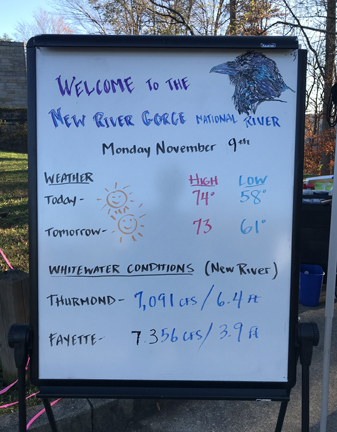 WELCOME TO THE
NEW RIVER GORGE NATIONAL RIVER
Monday November 9th
WEATHER HIGH LOW
Today- 74° 58°
Tomorrow- 73 61°
WHITEWATER CONDITIONS (New River)
THURMOND- 7,091 CFS / 6.4 Ft
FAYETTE- 7.356 CFS / 3.9 Ft